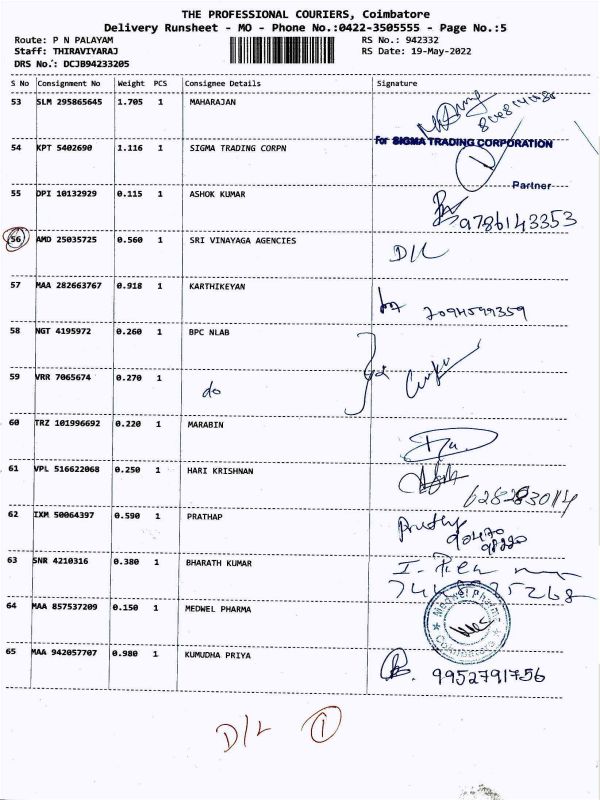 THE PROFESSIONAL COURIERS, Coimbatore
Delivery Runsheet - MO - Phone No.:0422-3505555 - Page No.:5
Route: P N PALAYAM RS No.: 942332
Staff: THIRAVIYARAJ RS Date: 19-May-2022
DRS No.: DCJB94233205
S No Consignment No Weight PCS Consignee Details Signature
53 SLM 295865645 1.705 1 MAHARAJAN
54 KPT 5402690 1.116 1 SIGMA TRADING CORPN for SIGMA TRADING CORPORATION
Partner
55 DPI 10132929 0.115 1 ASHOK KUMAR 9786143353
56 AMD 25035725 0.560 1 SRI VINAYAGA AGENCIES D/L
57 MAA 282663767 0.918 1 KARTHIKEYAN 7094599359
58 NGT 4195972 0.260 1 BPC NLAB
59 VRR 7065674 0.270 1 do
60 TRZ 101996692 0.220 1 MARABIN
61 VPL 516622068 0.250 1 HARI KRISHNAN
62 IXM 50064397 0.590 1 PRATHAP Prathp
90470
98220
63 SNR 4210316 0.380 1 BHARATH KUMAR
64 MAA 857537209 0.150 1 MEDWEL PHARMA Medwel Pharma
Coimbatore
65 MAA 942057707 0.980 1 KUMUDHA PRIYA 9952791756
D/L 1